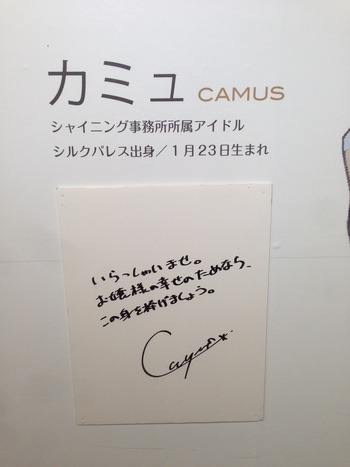 カミュ CAMUS
シャイニング事務所所属アイドル
シルクパレス出身／１月２３日生まれ
いらっしゃいませ。
お嬢様の幸せのためなら、
この身を捧げましょう。
Camus